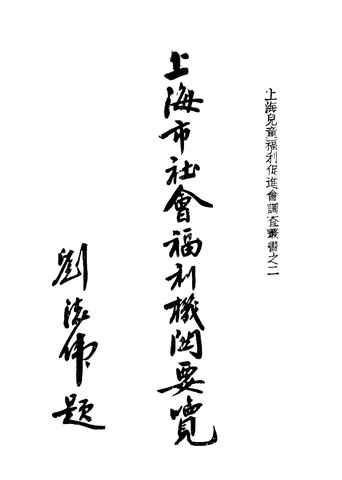 上海兒童福利促進會調査叢書之二
上海市社會福利機関要覽
劉德偉題